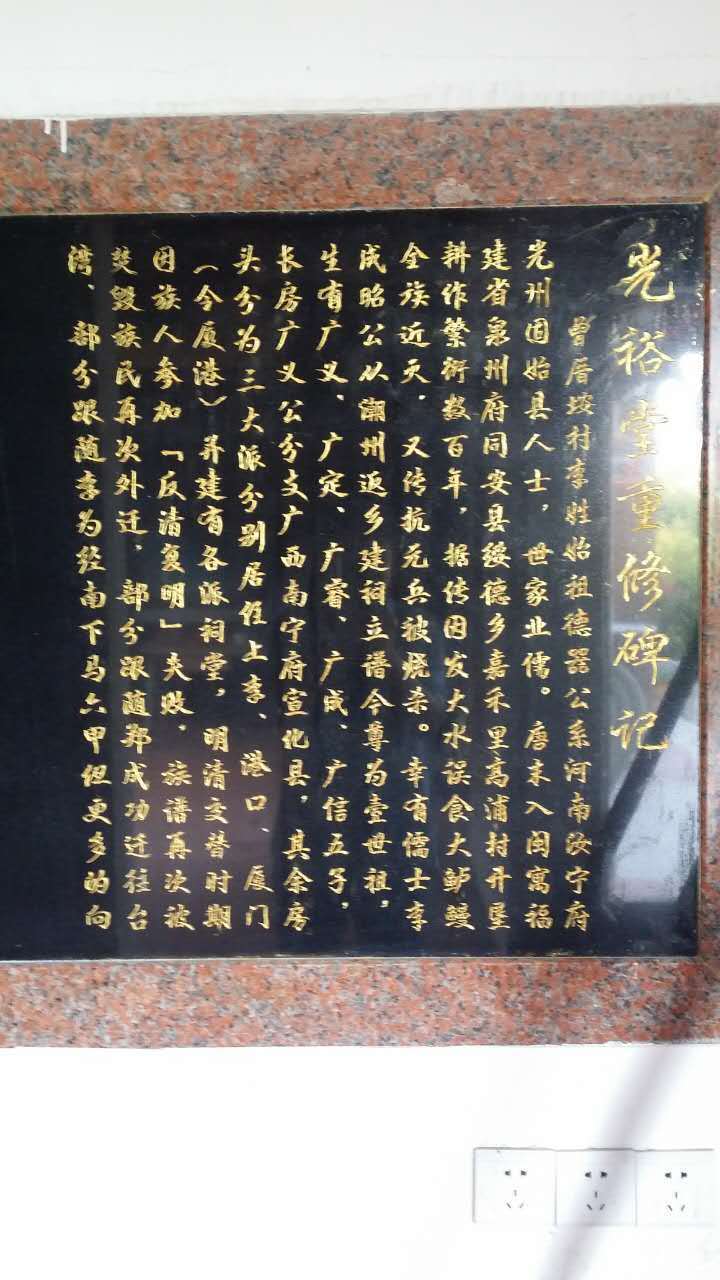 光裕堂重修碑记
曾厝垵村李姓始祖德器公系河南汝宁府
光州固始县人士，世家业儒。唐末入闽寓福
建省泉州府同安县绥德乡嘉禾里高浦村开垦
耕作繁衍数百年，据传因发大水误食大鲈鳗
全族近灭，又传抗元兵被烧杀。幸有儒士李
成昭公从潮州返乡建祠立谱今尊为壹世祖，
生有广义、广定、广睿、广成、广信五子，
长房广义公分支广西南宁府宣化县，其余房
头分为三大派分别居住上李、港口、厦门
（今厦港）并建有各派祠堂，明清交替时期
因族人参加「反清复明」失败，族谱再次被
焚毁族民再次外迁，部分跟随郑成功迁往台
湾、部分跟随李为经南下马六甲但更多的向